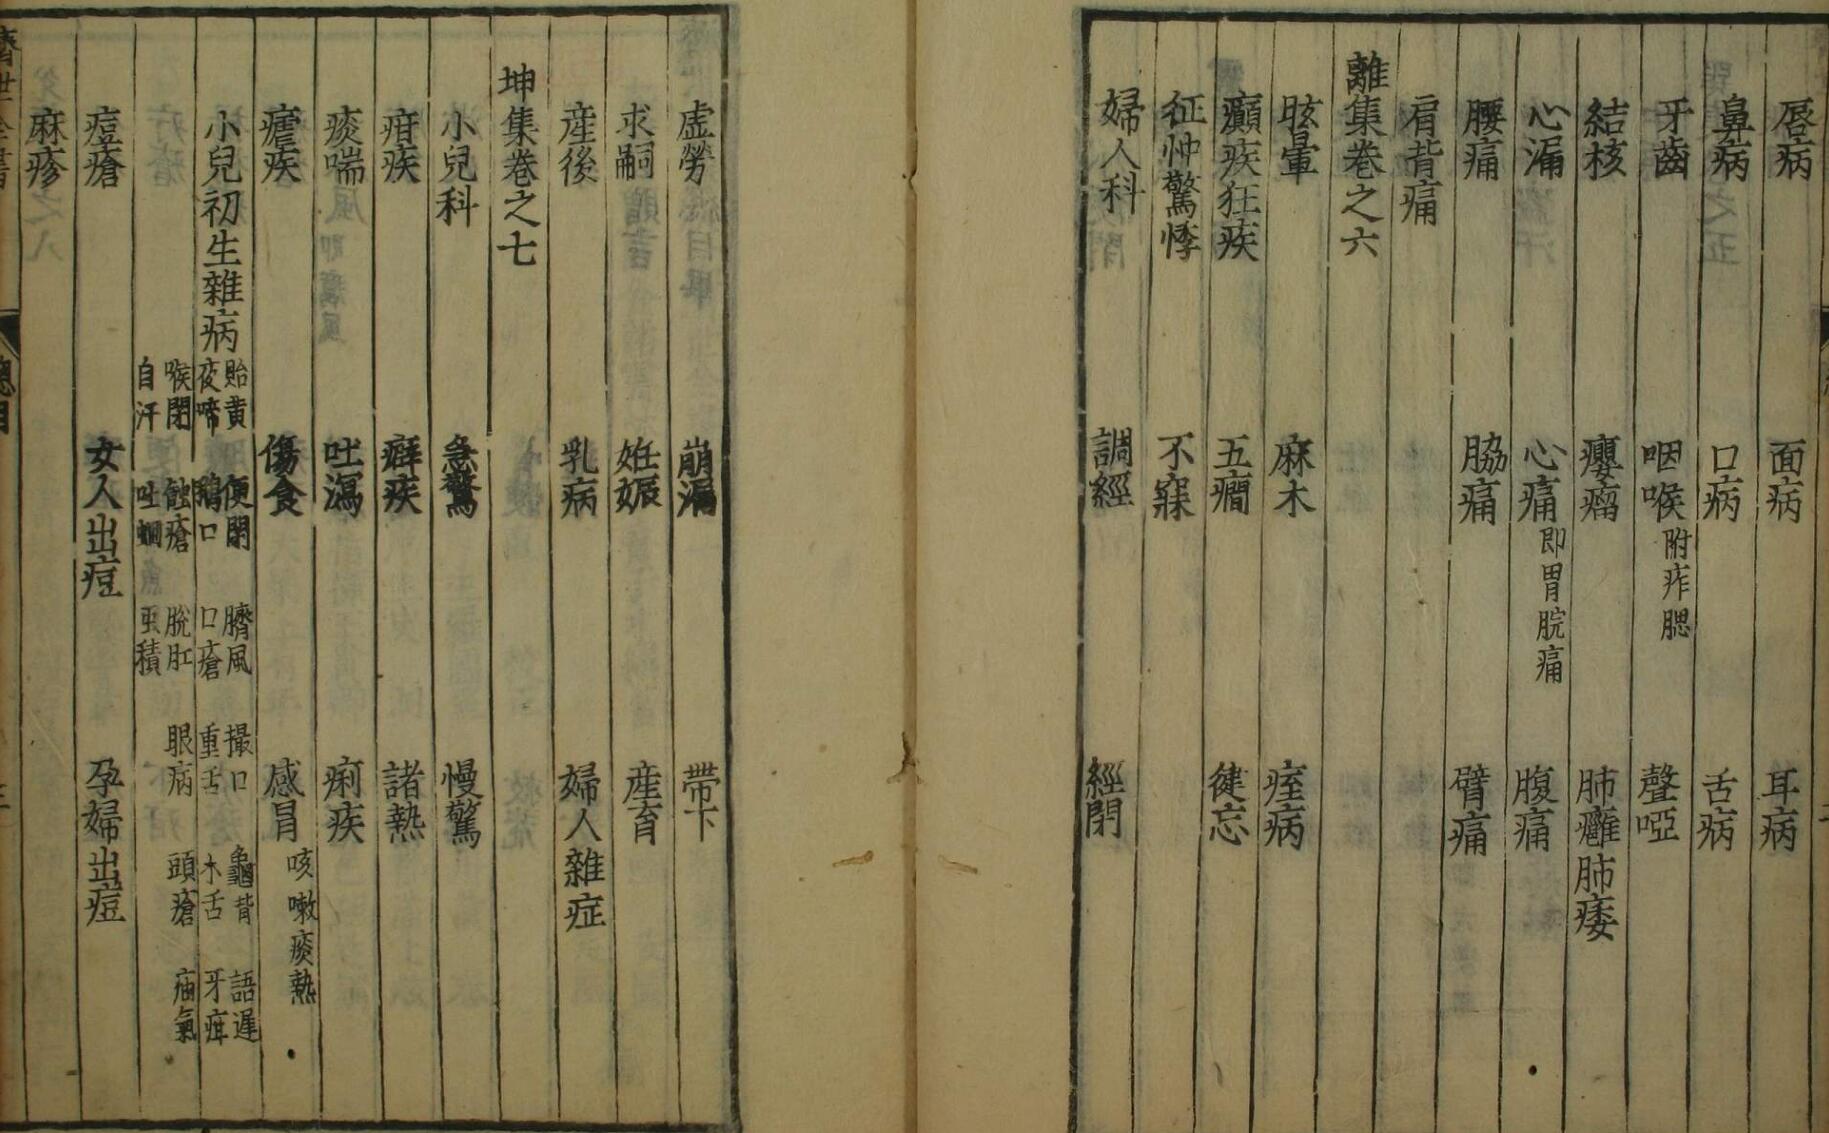 唇病 面病 耳病
鼻病 口病 舌病
牙齒 咽喉附痄腮 聲啞
結核 癭瘤 肺癰肺痿
心漏 心痛即胃脘痛 腹痛
腰痛 脇痛 臂痛
肩背痛
離集卷之六
眩暈 麻木 痓病
癲疾狂疾 五癇 健忘
怔忡驚悸 不寐
婦人科 調經 經閉
虛勞 崩漏 帶下
求嗣 妊娠 産育
産後 乳病 婦人雜症
坤集卷之七
小兒科 急驚 慢驚
疳疾 癖疾 諸熱
痰喘 吐瀉 痢疾
瘧疾 傷食 感冒咳嗽痰熱
小兒初生雜病 胎黄 便閉 臍風 撮口 龜背 語遲
夜啼 鵝口 口瘡 重舌 木舌 牙疳
喉閉 蝕瘡 脫肛 眼病 頭瘡 疝氣
自汗 吐蛔 虫積
痘瘡 女人出痘 孕婦出痘
麻疹
濟世全書
總目